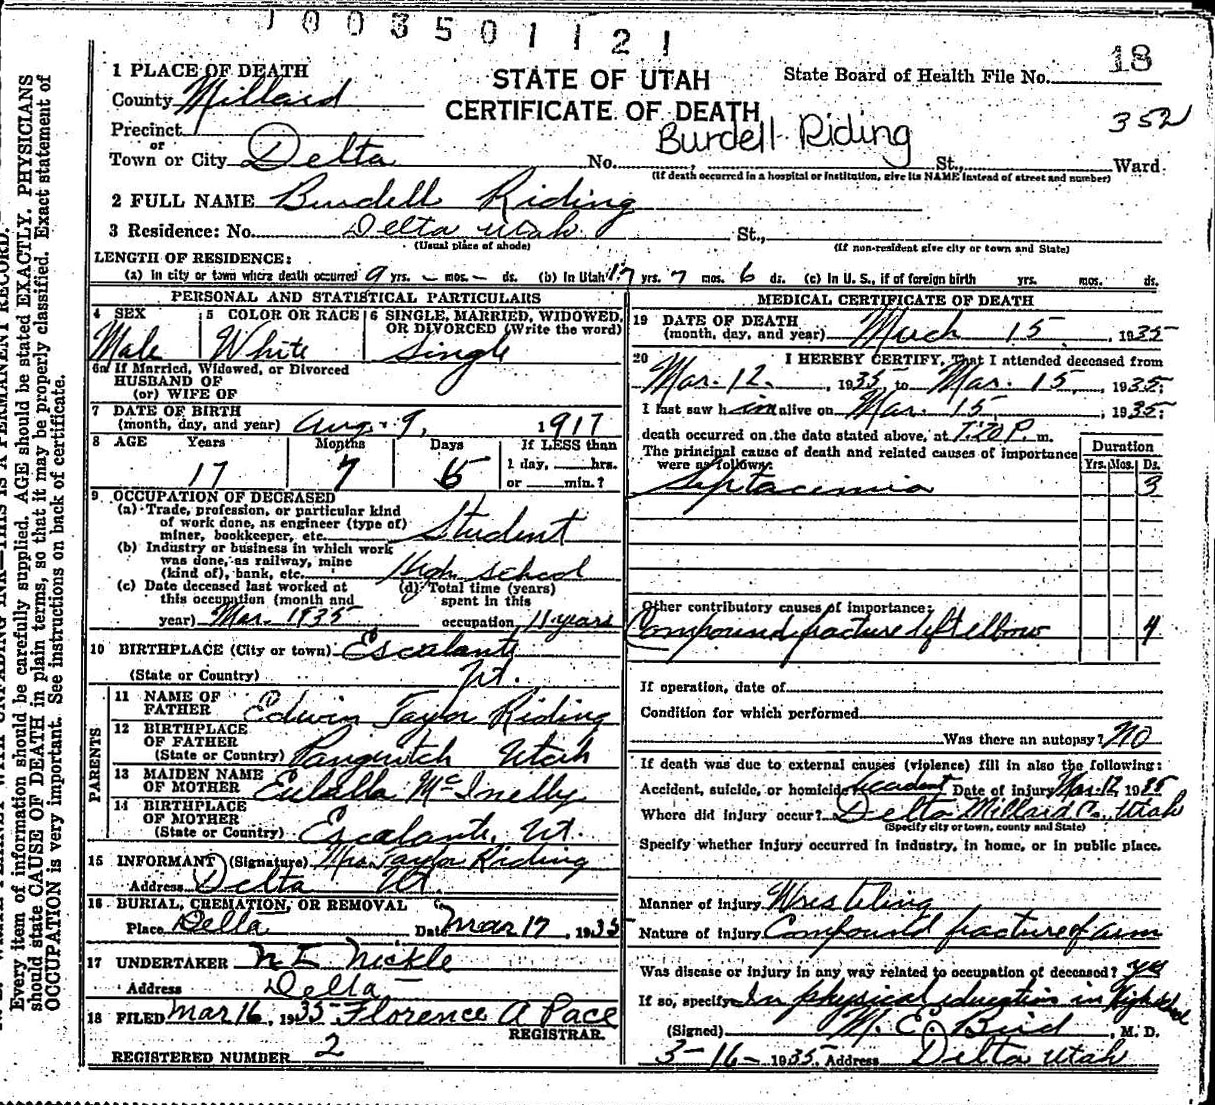 1003501121
18
352
STATE OF UTAH
CERTIFICATE OF DEATH
State Board of Health File No.
1 PLACE OF DEATH
County Millard
Precinct
or
Town or City Delta No. Burdell Riding St., Ward
(If death occurred in a hospital or institution, give its NAME instead of street and number)
2 FULL NAME Burdell Riding
3 Residence: No. Delta Utah St.,
(Usual place of abode) (If non-resident give city or town and State)
LENGTH OF RESIDENCE:
(a) In city or town where death occurred 9 yrs. - mos. - ds. (b) In Utah 17 yrs. 7 mos. 6 ds. (c) In U. S., if of foreign birth yrs. mos. ds.
PERSONAL AND STATISTICAL PARTICULARS
4 SEX 5 COLOR OR RACE 6 SINGLE, MARRIED, WIDOWED,
OR DIVORCED (Write the word)
Male White Single
6a If Married, Widowed, or Divorced
HUSBAND OF
(or) WIFE OF
7 DATE OF BIRTH
(month, day, and year) Aug. 9, 1917
8 AGE Years Months Days If LESS than
17 7 6 1 day, hrs.
or min.?
9 OCCUPATION OF DECEASED
(a) Trade, profession, or particular kind
of work done, as engineer (type of)
miner, bookkeeper, etc. Student
(b) Industry or business in which work
was done, as railway, mine
(kind of), bank, etc. High School
(c) Date deceased last worked at (d) Total time (years)
this occupation (month and spent in this
year) Mar. 1935 occupation 11 years
10 BIRTHPLACE (City or town) Escalante
(State or Country) Ut.
PARENTS
11 NAME OF
FATHER Edwin Taylor Riding
12 BIRTHPLACE
OF FATHER
(State or Country) Panguitch Utah
13 MAIDEN NAME
OF MOTHER Eulalla McInelly
14 BIRTHPLACE
OF MOTHER
(State or Country) Escalante, Ut.
15 INFORMANT (Signature) Mrs. Taylor Riding
Address Delta Ut.
16 BURIAL, CREMATION, OR REMOVAL
Place Delta Date Mar 17, 1935
17 UNDERTAKER N E Nickle
Address Delta
18 FILED Mar 16, 1935 Florence A Pace
REGISTRAR.
REGISTERED NUMBER 2
MEDICAL CERTIFICATE OF DEATH
19 DATE OF DEATH
(month, day, and year) March 15, 1935
20 I HEREBY CERTIFY, That I attended deceased from
Mar. 12, 1935, to Mar. 15, 1935;
I last saw him alive on Mar. 15, 1935;
death occurred on the date stated above, at 7:20 P. m.
The principal cause of death and related causes of importance
were as follows:
Duration
Yrs. Mos. Ds.
Septacemia 3
Other contributory causes of importance:
Compound fracture left elbow 4
If operation, date of
Condition for which performed
Was there an autopsy? No
If death was due to external causes (violence) fill in also the following:
Accident, suicide, or homicide Accident Date of injury Mar. 12 1935
Where did injury occur? Delta Millard Co., Utah
(Specify city or town, county and State)
Specify whether injury occurred in industry, in home, or in public place.
Manner of injury Wrestling
Nature of injury Compound fracture of arm
Was disease or injury in any way related to occupation of deceased? yes
If so, specify In physical education in High School
(Signed) M. E. Bird, M. D.
3-16-1935, Address Delta Utah
Every item of information should be carefully supplied. AGE should be stated EXACTLY. PHYSICIANS
should state CAUSE OF DEATH in plain terms, so that it may be properly classified. Exact statement of
OCCUPATION is very important. See instructions on back of certificate.